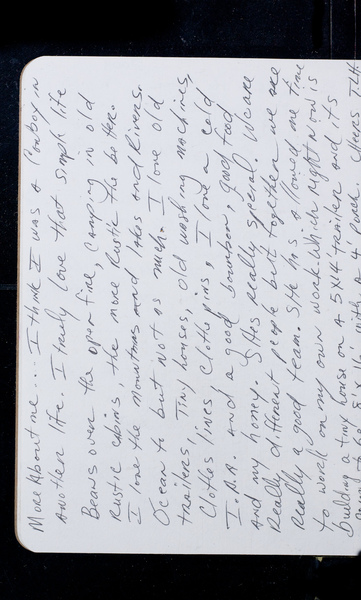 More About me... I think I was a Cowboy in
another life. I truly love that simple life
Beans over the open fire, camping in old
Rustic cabins, the more Rustic the better.
I love the mountains and lakes and Rivers.
Ocean to but not as much. I love old
trailers, Tiny houses, old washing machines,
Clothes lines clothes pins, I love a cold
I.P.A. and a good bourbon, good food
and my honey. Shes really special. We are
Really different people but together we are
Really a good team. She has allowed me time
to work on my own work. Which right now is
building a tiny house on a 5x14 trailer and its